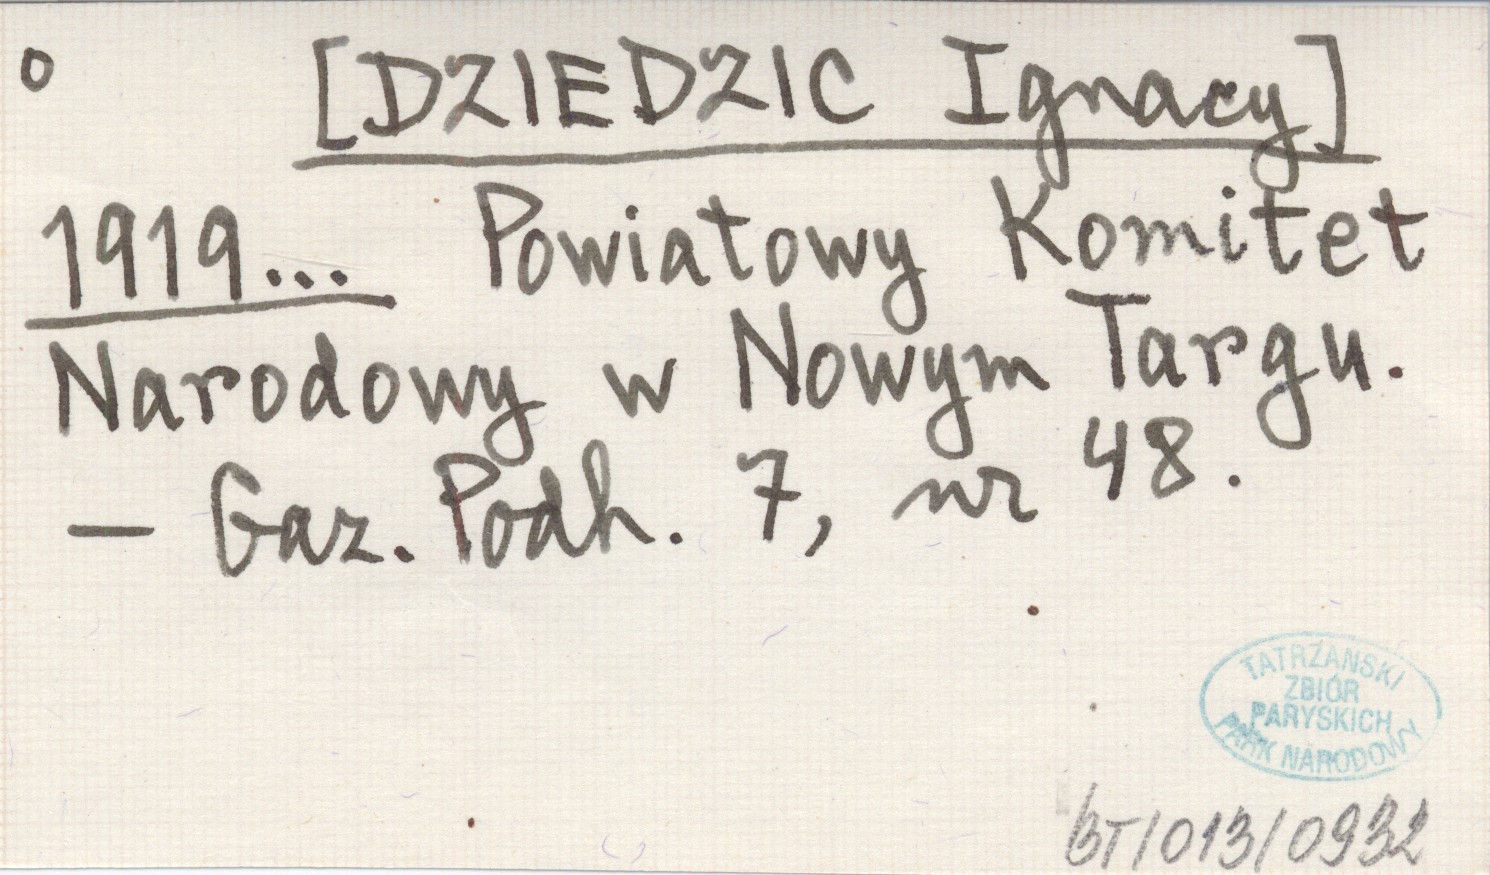 o [DZIEDZIC Ignacy]
1919... Powiatowy Komitet
Narodowy w Nowym Targu.
— Gaz. Podh. 7, nr 48.
TATRZAŃSKI
ZBIÓR
PARYSKICH
PARK NARODOWY
BT/013/0932